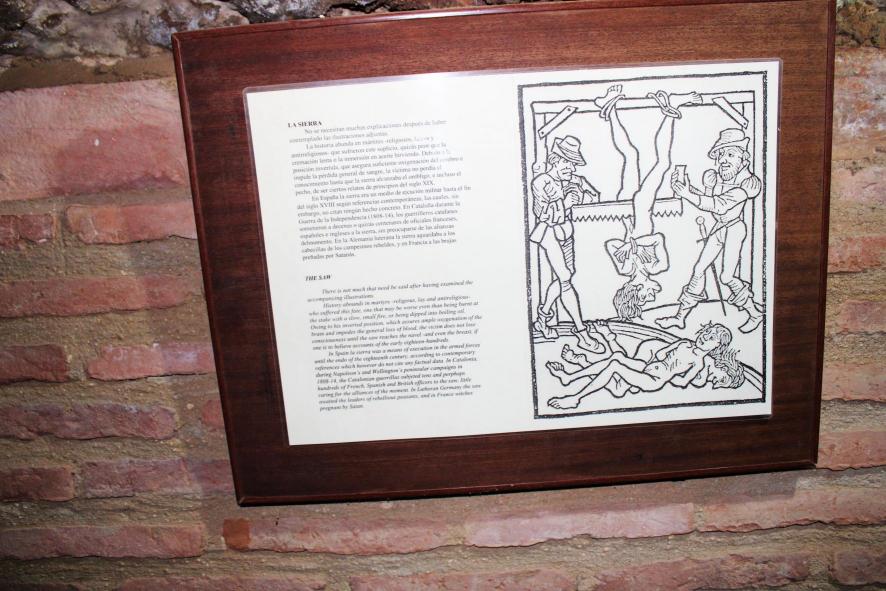 LA SIERRA
No se necesitan muchas explicaciones después de haber
contemplado las ilustraciones adjuntas.
La historia abunda en mártires -religiosos, laicos y
antirreligiosos- que sufrieron este suplicio, quizás peor que la
cremación lenta o la inmersión en aceite hirviendo. Debido a la
posición invertida, que asegura suficiente oxigenación del cerebro e
impide la pérdida general de sangre, la víctima no perdía el
conocimiento hasta que la sierra alcanzaba el ombligo, e incluso el
pecho, de ser ciertos relatos de principios del siglo XIX.
En España la sierra era un medio de ejecución militar hasta el fin
del siglo XVIII según referencias contemporáneas, las cuales, sin
embargo, no citan ningún hecho concreto. En Cataluña durante la
Guerra de la Independencia (1808-14), los guerrilleros catalanes
sometieron a decenas o quizás centenares de oficiales franceses,
españoles e ingleses a la sierra, sin preocuparse de las alianzas
del momento. En la Alemania luterana la sierra aguardaba a los
cabecillas de los campesinos rebeldes, y en Francia a las brujas
preñadas por Satanás.
THE SAW
There is not much that need be said after having examined the
accompanying illustrations.
History abounds in martyrs -religious, lay and antireligious-
who suffered this fate, one that may be worse even than being burnt at
the stake with a slow, small fire, or being dipped into boiling oil.
Owing to his inverted position, which assures ample oxygenation of the
brain and impedes the general loss of blood, the victim does not lose
consciousness until the saw reaches the navel -and even the breast, if
one is to believe accounts of the early eighteen-hundreds.
In Spain la sierra was a means of execution in the armed forces
until the endo of the eighteenth century, according to contemporary
references which however do not cite any factual data. In Catalonia,
during Napoleon's and Wellington's peninsular campaigns in
1808-14, the Catalonian guerrillas subjeted tens and perphaps
hundreds of French, Spanish and British officers to the saw, little
caring for the alliances of the moment. In Lutheran Germany the saw
awaited the leaders of rebellious peasants, and in France witches
pregnant by Satan.